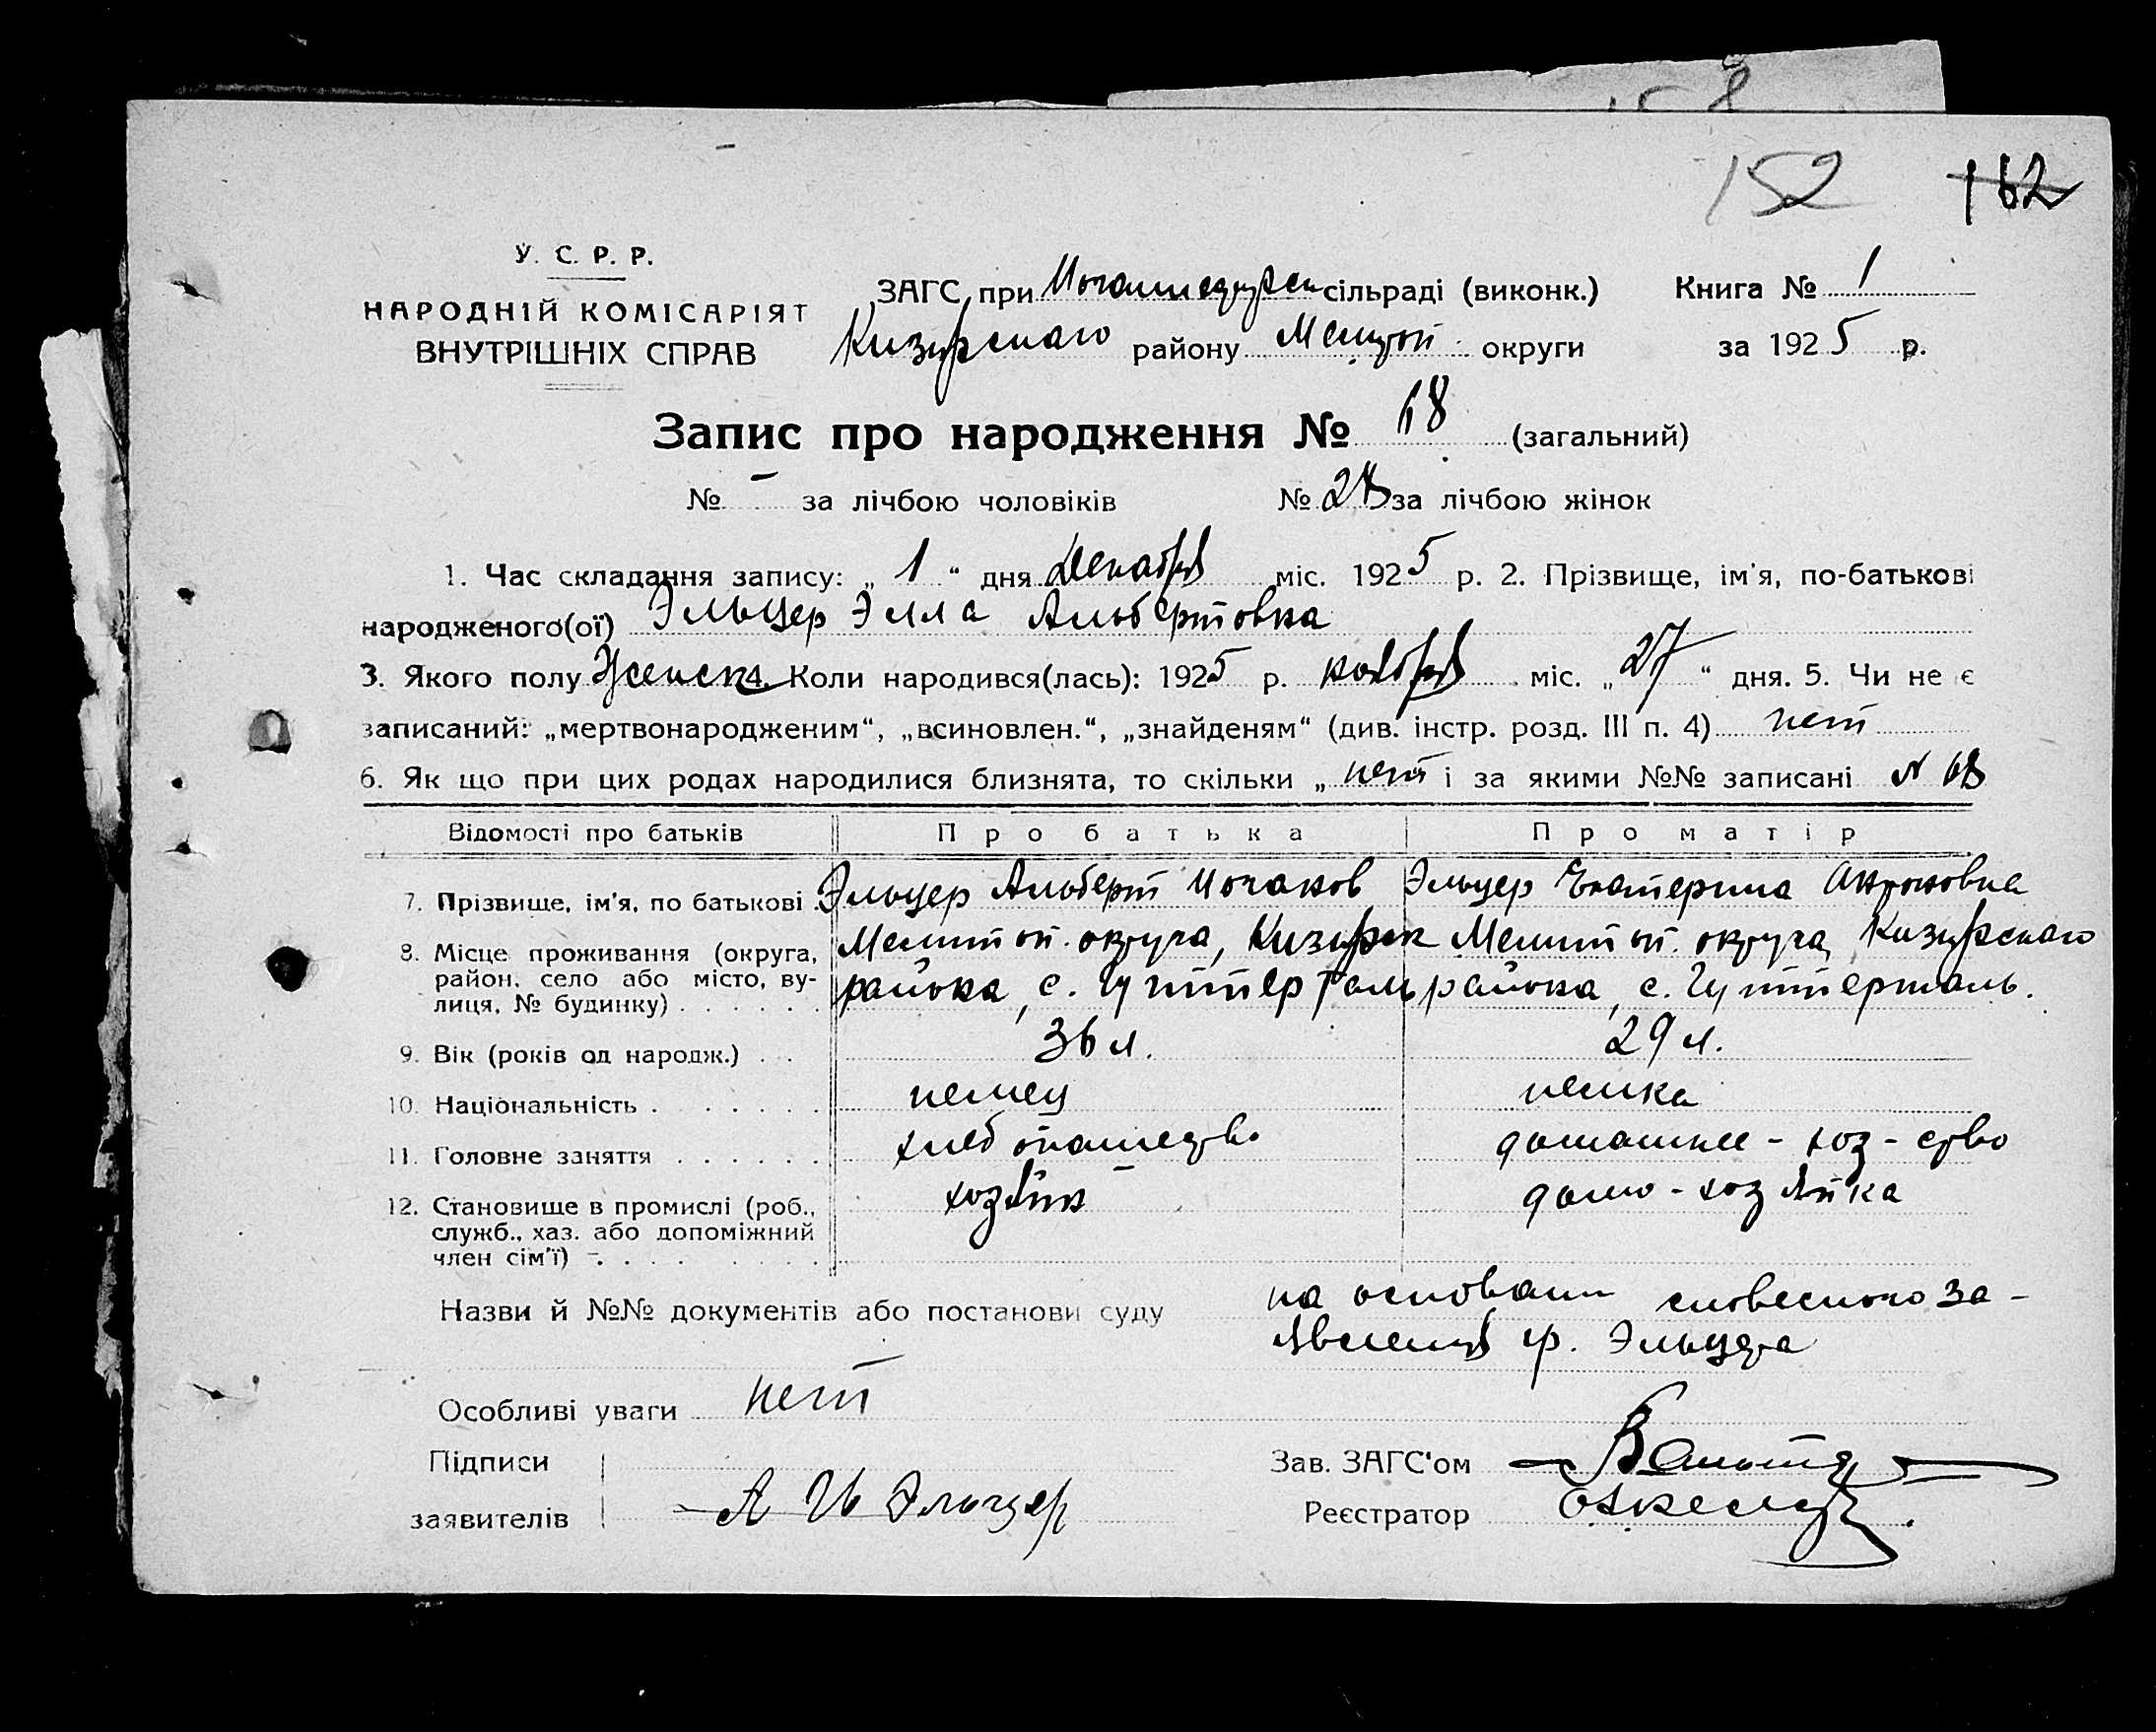 152 162
У. С. Р. Р.
НАРОДНІЙ КОМІСАРІЯТ
ВНУТРІШНІХ СПРАВ
ЗАГС при сільраді (виконк.) Книга № 1
району округи за 1925 р.
Запис про народження № 68 (загальний)
№ - за лічбою чоловіків № 28 за лічбою жінок
1. Час складання запису: „ 1 “ дня Декабря міс. 1925 р. 2. Прізвище, ім'я, по-батькові
народженого(ої) Эльцер Элла Альбертовна
3. Якого полу Женск 4. Коли народився(лась): 1925 р. ноября міс. „ 27 “ дня. 5. Чи не є
записаний: „мертвонародженим“, „всиновлен.“, „знайденям“ (див. інстр. розд. III п. 4) нет
6. Як що при цих родах народилися близнята, то скільки „ нет “ і за якими №№ записані № 68
Відомості про батьків Про батька Про матір
7. Прізвище, ім'я, по батькові Эльцер Альберт Эльцер Екатерина
8. Місце проживання (округа, Мелитоп. округа, Мелитоп. округа,
район, село або місто, ву- района, с. Гуттерталь района, с. Гуттерталь.
лиця, № будинку)
9. Вік (років од народж.) 36 л. 29 л.
10. Національність немец немка
11. Головне заняття домашнее - хоз - ство
12. Становище в промислі (роб., хозяин домо - хозяйка
служб., хаз. або допоміжний
член сім'ї)
Назви й №№ документів або постанови суду на основании словесного за-
явления гр. Эльцера
Особливі уваги нет
Підписи Зав. ЗАГС'ом
заявителів А Эльцер Реєстратор